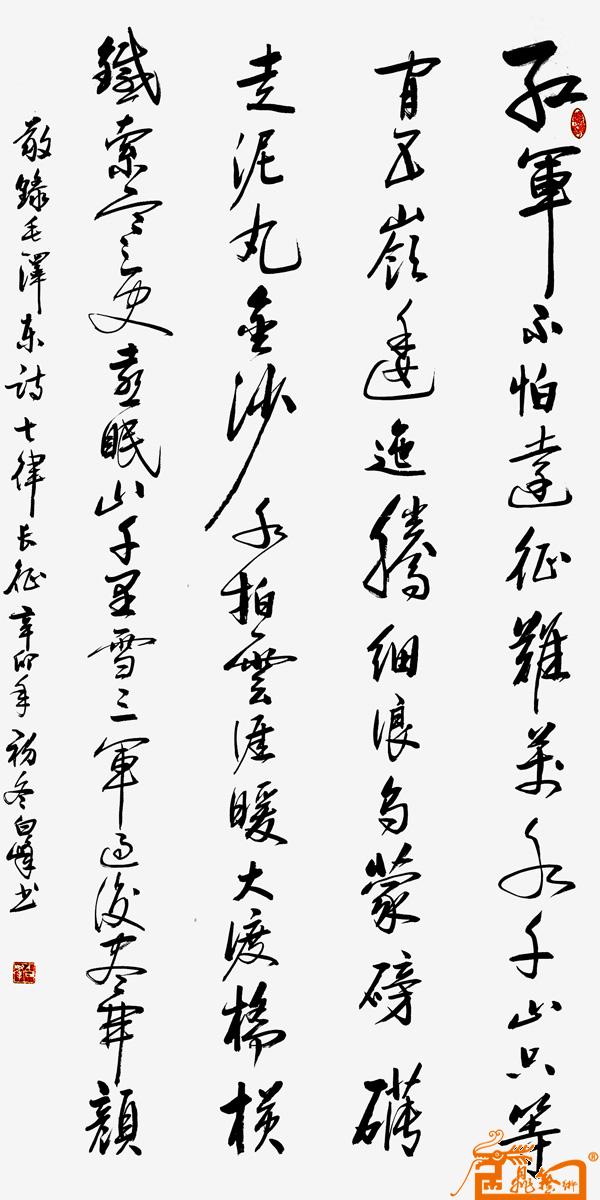 紅軍不怕遠征難萬水千山只等
閒五嶺逶迤騰細浪烏蒙磅礴
走泥丸金沙水拍雲涯暖大渡橋横
鐵索寒更喜眠山千里雪三軍過後盡開顏
敬錄毛澤东诗七律长征辛卯年初冬白峰书